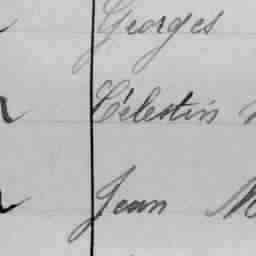 Georges
Célestin
Jean M